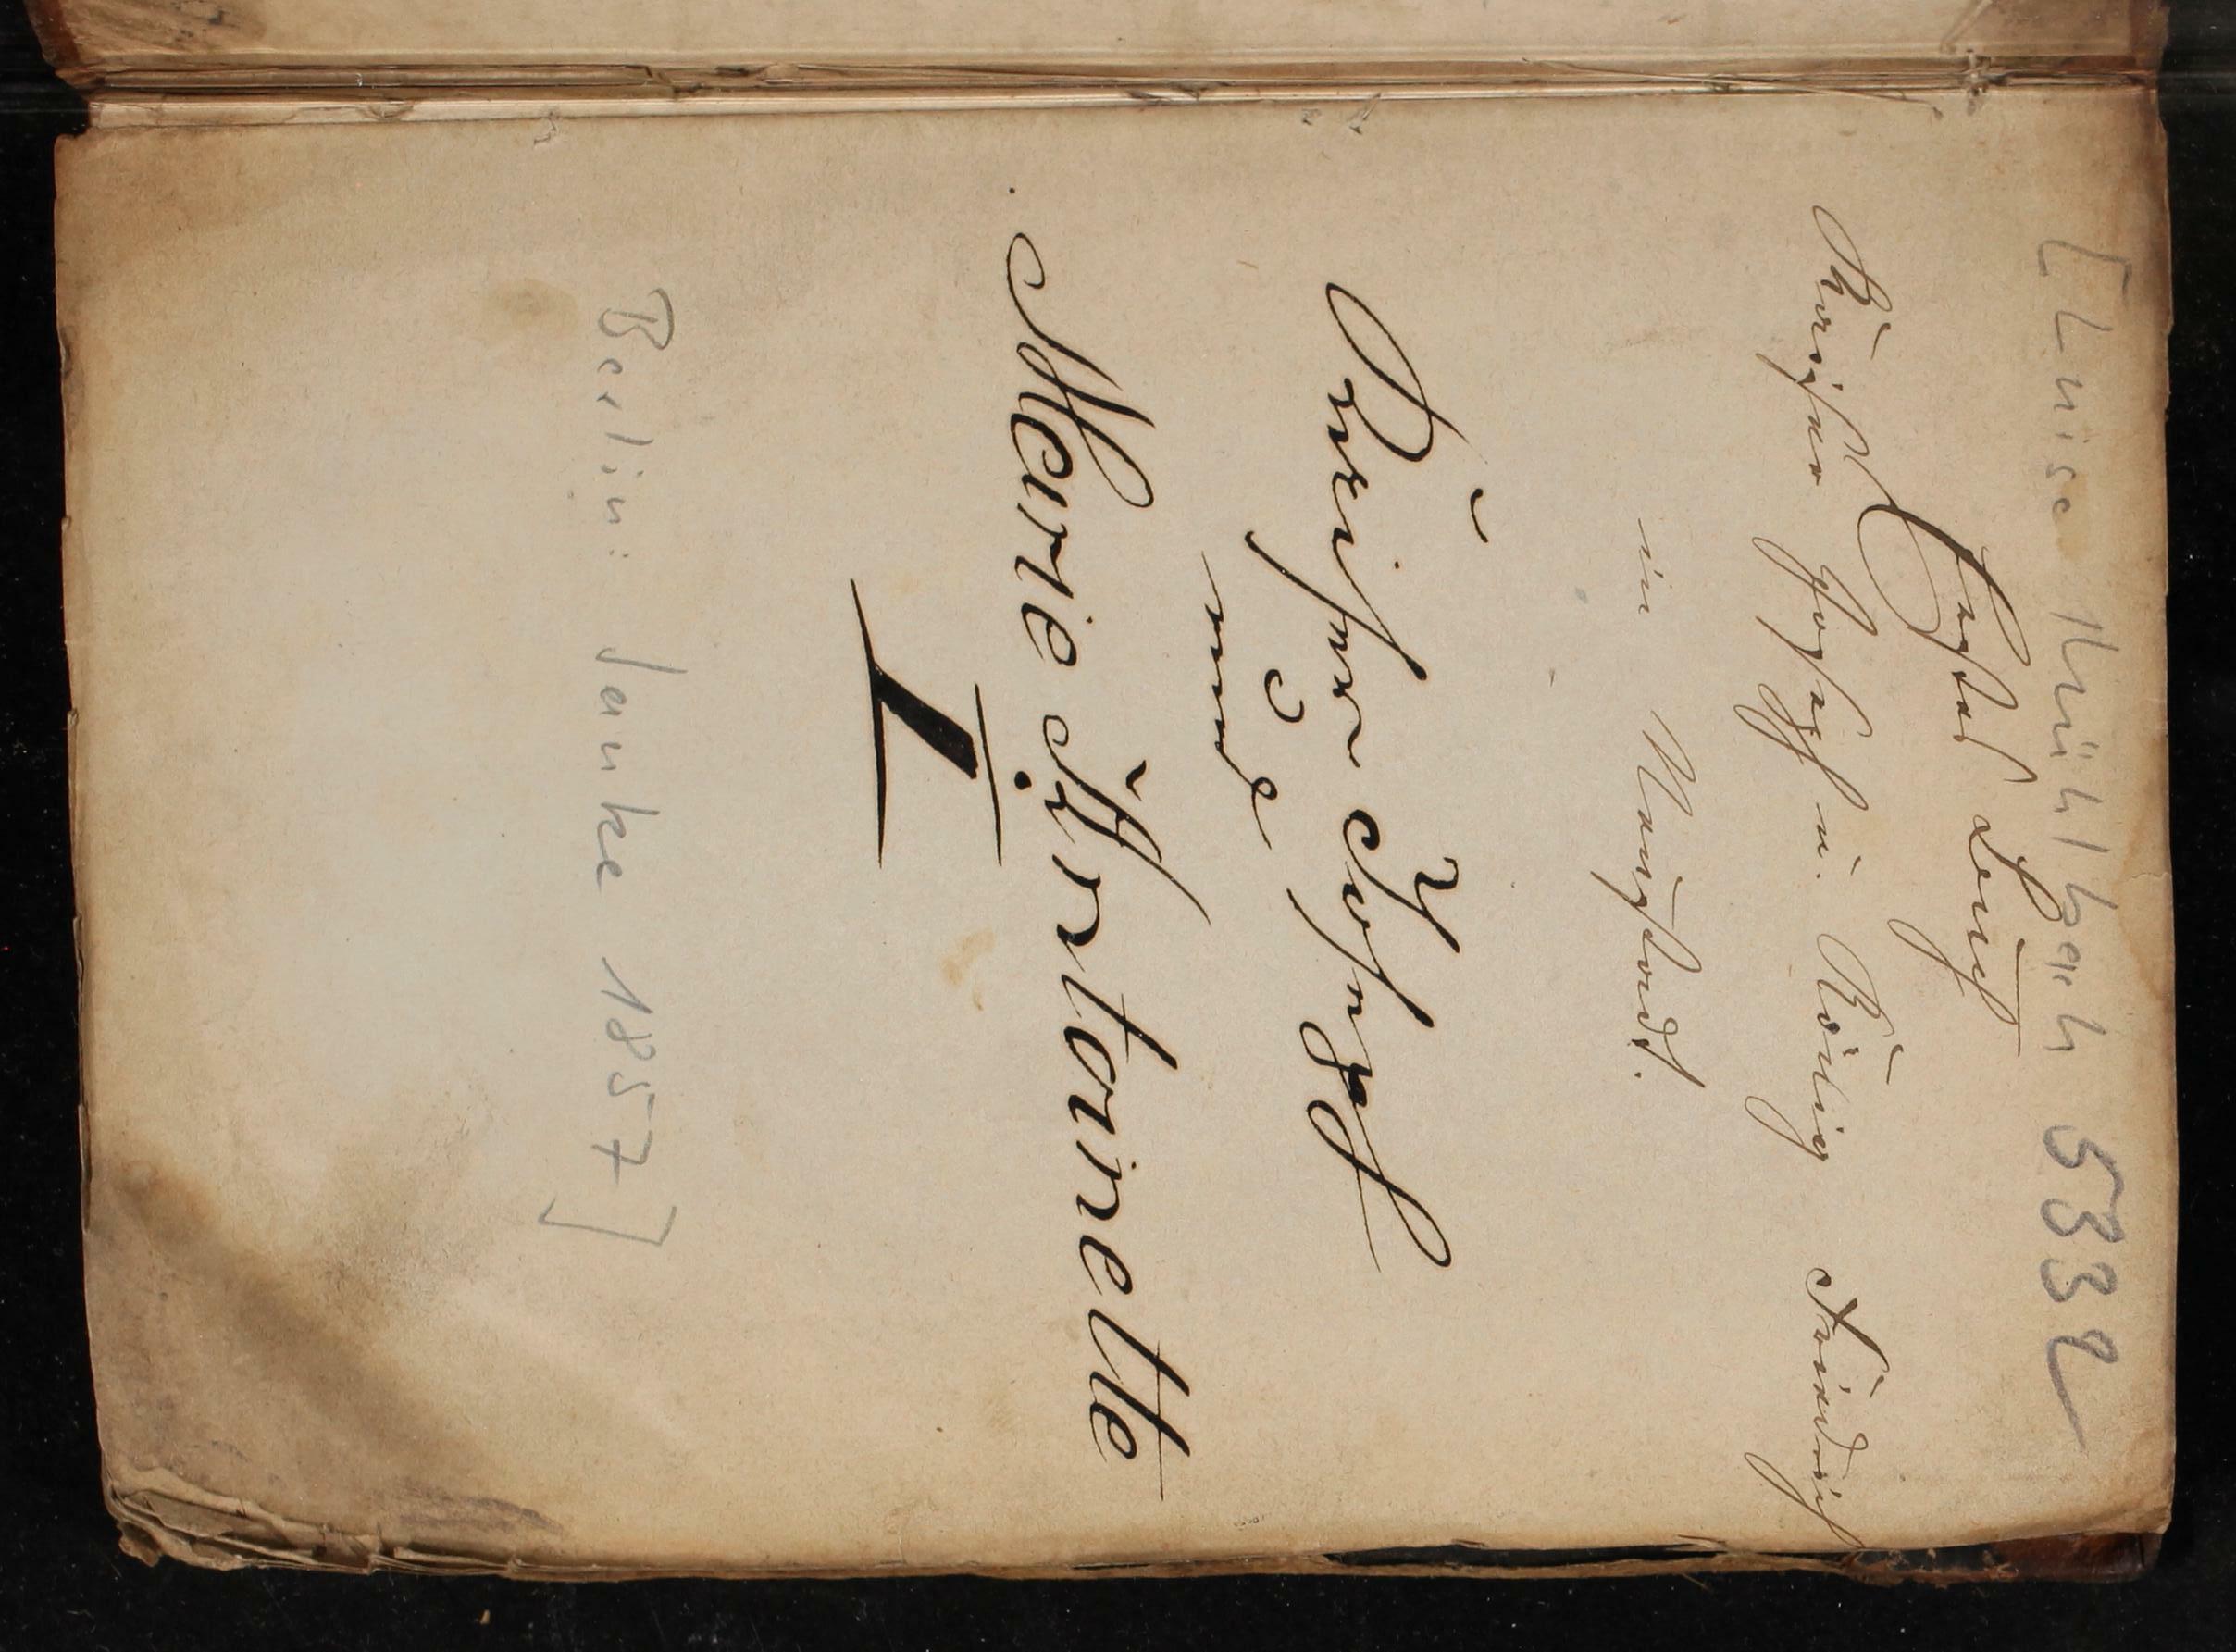 [Luise Mühlbach 5332
Erstes Buch
Kaiser Joseph u. König Friedrich
in Neustadt.
Kaiser Joseph
und
Marie Antoinette
I
Berlin: Janke 1857]